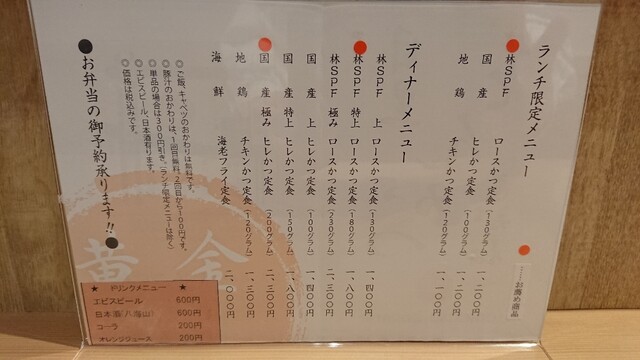 ランチ限定メニュー
●……お薦め商品
●林SPF ロースかつ定食(130グラム) 一、二〇〇円
国産 ヒレかつ定食(100グラム) 一、二〇〇円
地鶏 チキンかつ定食(120グラム) 一、一〇〇円
ディナーメニュー
林SPF 上 ロースかつ定食(130グラム) 一、四〇〇円
●林SPF 特上 ロースかつ定食(180グラム) 一、八〇〇円
林SPF 極み ロースかつ定食(230グラム) 二、三〇〇円
国産 上 ヒレかつ定食(100グラム) 一、四〇〇円
国産 特上 ヒレかつ定食(150グラム) 一、八〇〇円
●国産 極み ヒレかつ定食(200グラム) 二、三〇〇円
地鶏 チキンかつ定食(120グラム) 一、三〇〇円
海鮮 海老フライ定食 二、〇〇〇円
◎ご飯、キャベツのおかわりは無料です。
◎豚汁のおかわりは、1回目無料。2回目から100円です。
◎単品の場合は300円引き。(ランチ限定メニューは除く)
◎エビスビール、日本酒有ります。
◎価格は税込みです。
●お弁当の御予約承ります!!●
黄金
★ ドリンクメニュー ★
エビスビール 600円
日本酒(八海山) 600円
コーラ 200円
オレンジジュース 200円